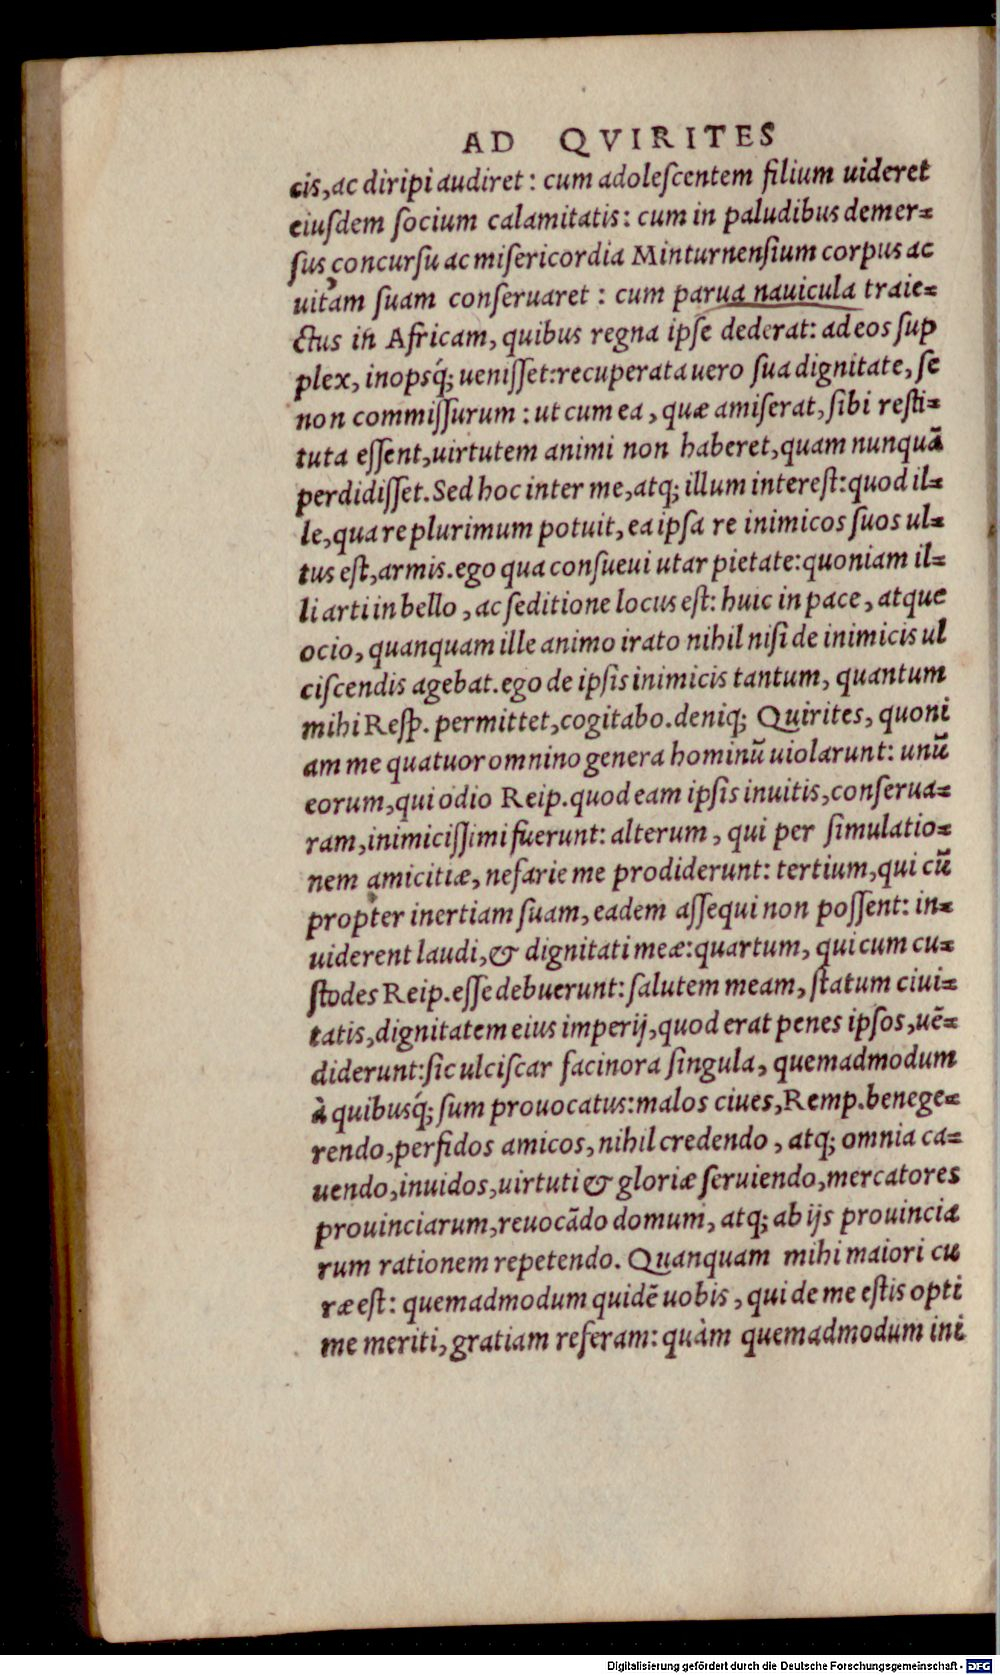 AD QVIRITES
cis, ac diripi audiret: cum adoleſcentem filium uideret
eiuſdem ſocium calamitatis: cum in paludibus demer=
ſus concurſu ac miſericordia Minturnenſium corpus ac
uitam ſuam conſeruaret: cum parua nauicula traie=
ctus in Africam, quibus regna ipſe dederat: ad eos ſup
plex, inopsq́; ueniſſet: recuperata uero ſua dignitate, ſe
non commiſſurum: ut cum ea, quæ amiſerat, ſibi reſti=
tuta eſſent, uirtutem animi non haberet, quam nunquā
perdidiſſet. Sed hoc inter me, atq; illum intereſt: quod il=
le, qua re plurimum potuit, ea ipſa re inimicos ſuos ul=
tus eſt, armis. ego qua conſueui utar pietate: quoniam il=
li arti in bello, ac ſeditione locus eſt: huic in pace, atque
ocio, quanquam ille animo irato nihil niſi de inimicis ul
ciſcendis agebat. ego de ipſis inimicis tantum, quantum
mihi Reſp. permittet, cogitabo. deniq; Quirites, quoni
am me quatuor omnino genera hominū uiolarunt: unū
eorum, qui odio Reip. quod eam ipſis inuitis, conſerua=
ram, inimiciſſimi fuerunt: alterum, qui per ſimulatio=
nem amicitiæ, nefarie me prodiderunt: tertium, qui cū
propter inertiam ſuam, eadem aſſequi non poſſent: in=
uiderent laudi, & dignitati meæ: quartum, qui cum cu=
ſtodes Reip. eſſe debuerunt: ſalutem meam, ſtatum ciui=
tatis, dignitatem eius imperij, quod erat penes ipſos, uē=
diderunt: ſic ulciſcar facinora ſingula, quemadmodum
à quibusq́; ſum prouocatus: malos ciues, Remp. bene ge=
rendo, perfidos amicos, nihil credendo, atq; omnia ca=
uendo, inuidos, uirtuti & gloriæ ſeruiendo, mercatores
prouinciarum, reuocādo domum, atq; ab ijs prouincia
rum rationem repetendo. Quanquam mihi maiori cu
ræ eſt: quemadmodum quidē uobis, qui de me eſtis opti
me meriti, gratiam referam: quàm quemadmodum ini
Digitalisierung gefördert durch die Deutsche Forschungsgemeinschaft - DFG